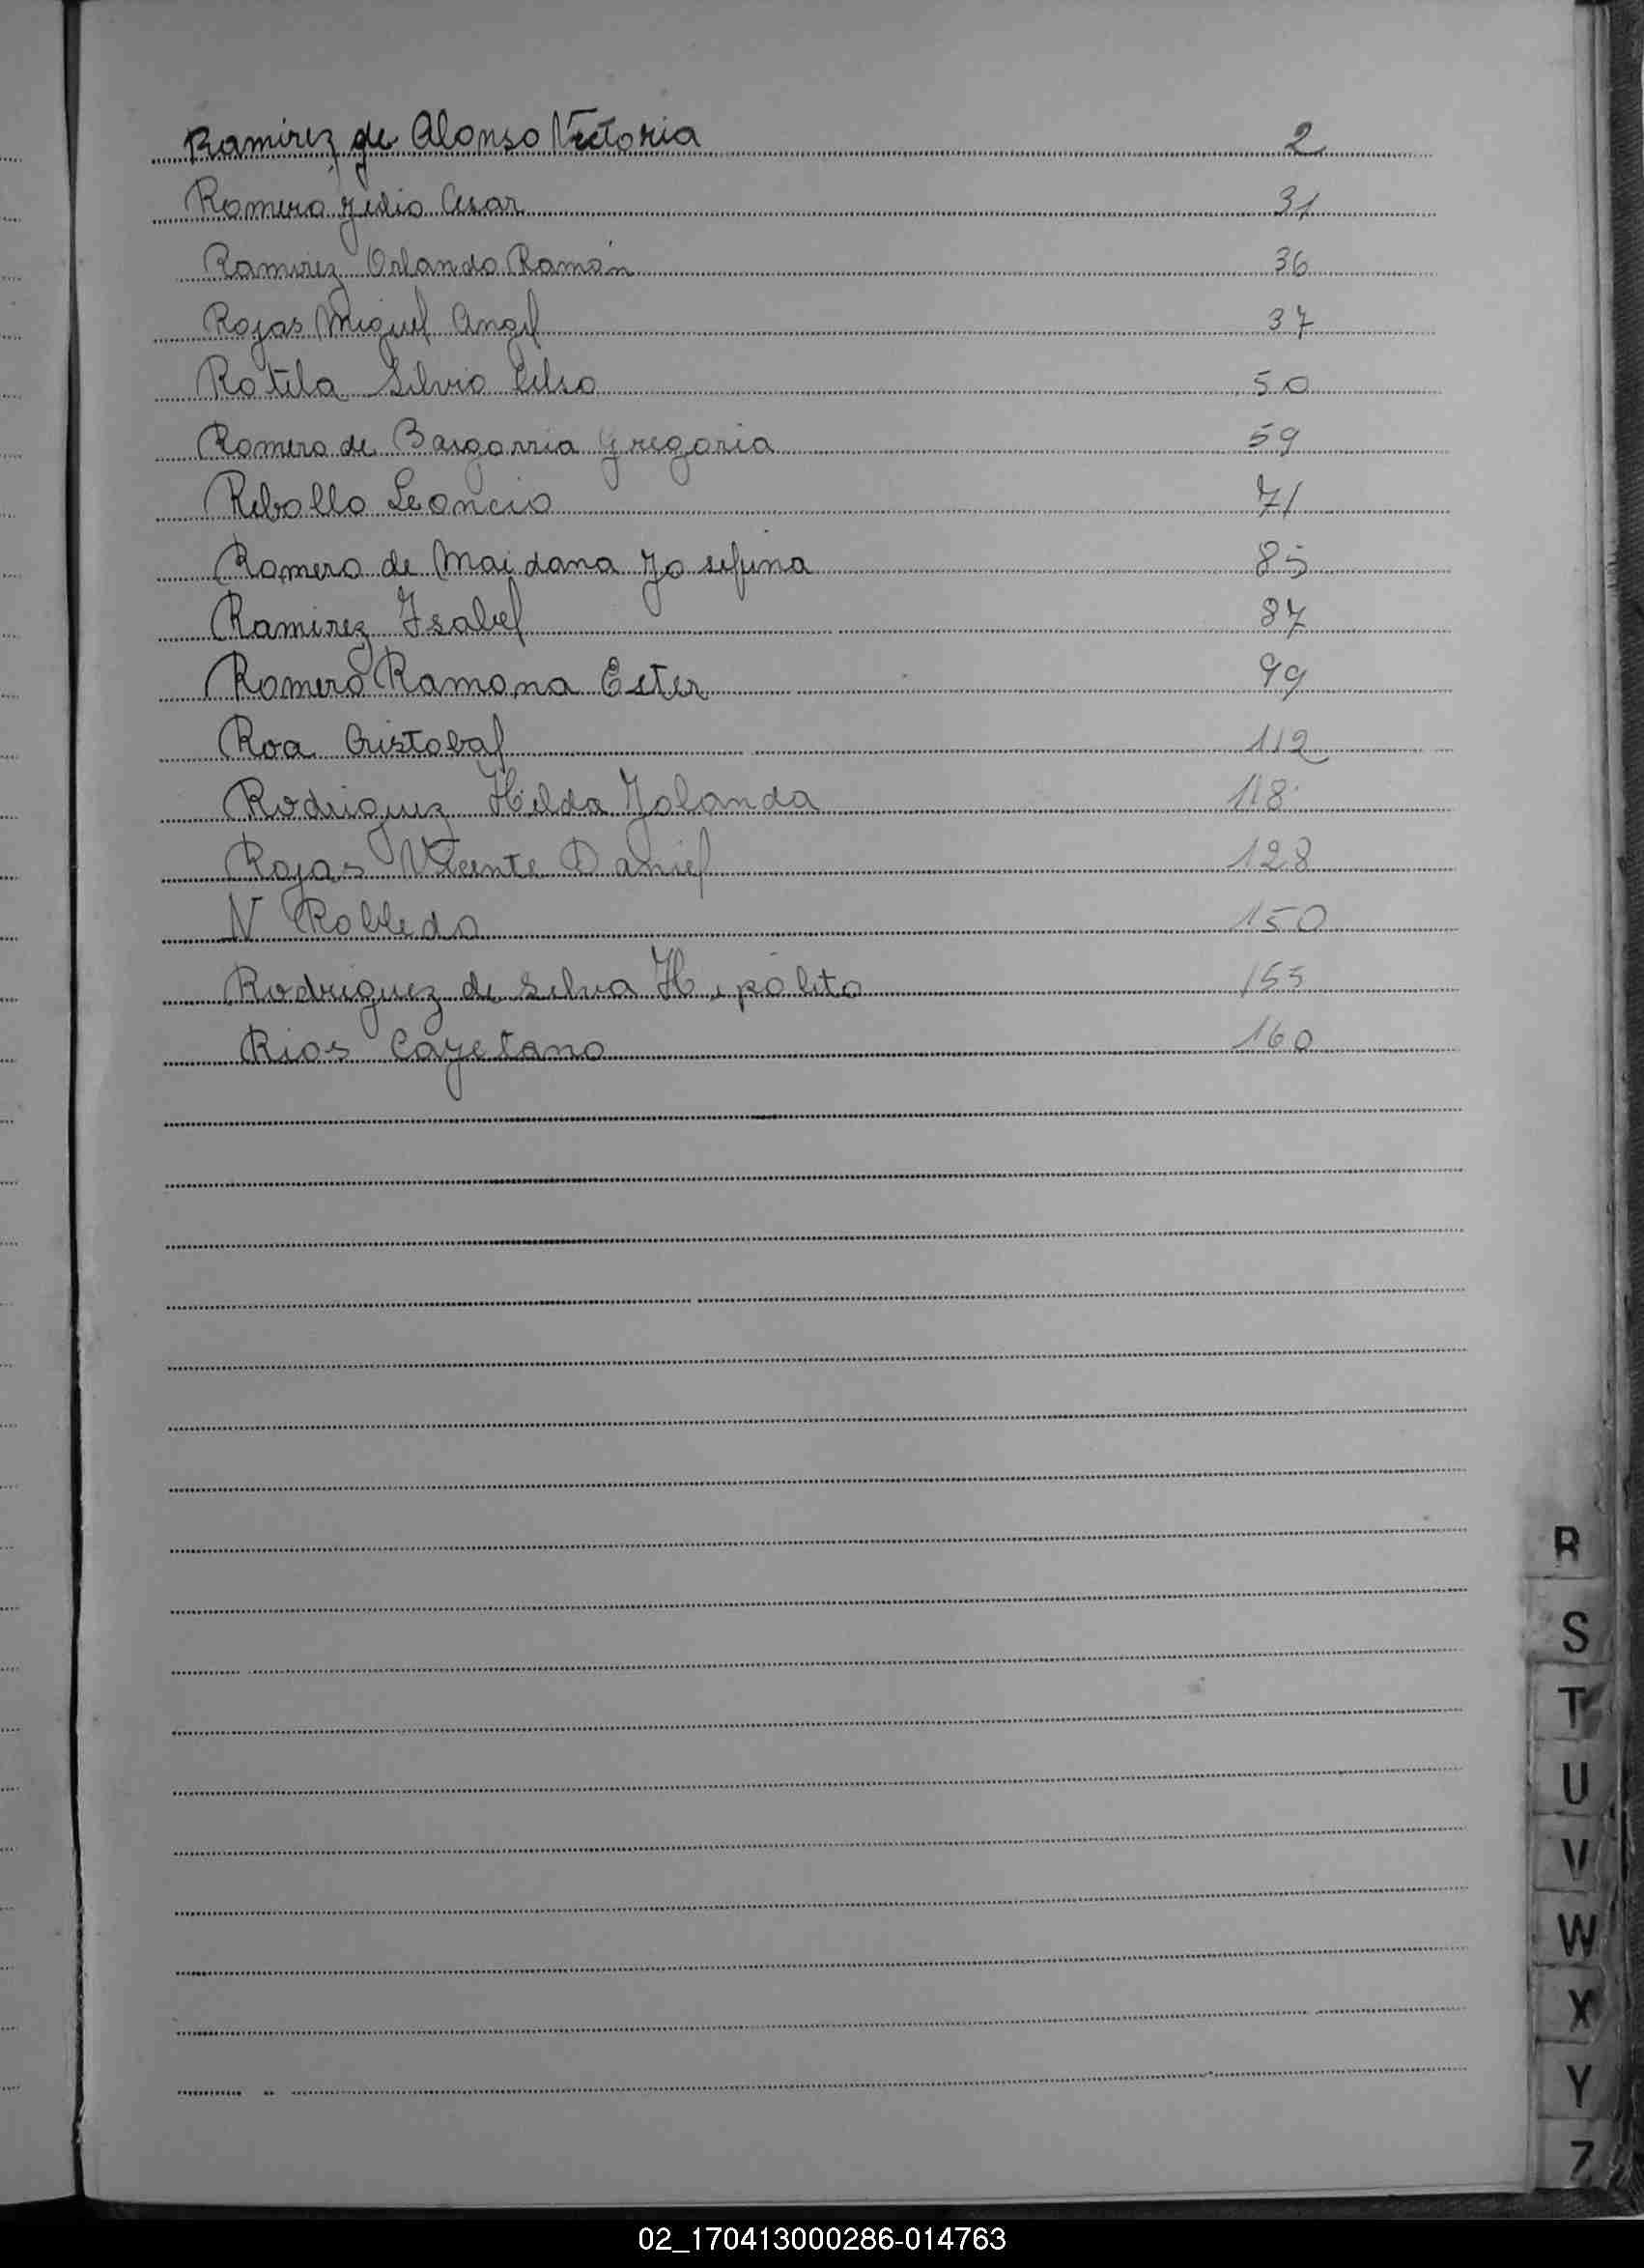 Ramirez de Alonso Victoria 2
Romero Julio Cesar 31
Ramirez Orlando Ramón 36
Rojas Miguel Angel 37
Rotela Silvio Celso 50
Romero de Baigorria Gregoria 59
Rebollo Leoncio 71
Romero de Maidana Josefina 85
Ramirez Isabel 87
Romero Ramona Ester 99
Roa Cristobal 112
Rodriguez Hilda Yolanda 118
Rojas Vicente Daniel 128
N Robledo 150
Rodriguez de Silva Hipólito 155
Rios Cayetano 160
R
S
T
U
V
W
X
Y
Z
02_170413000286-014763